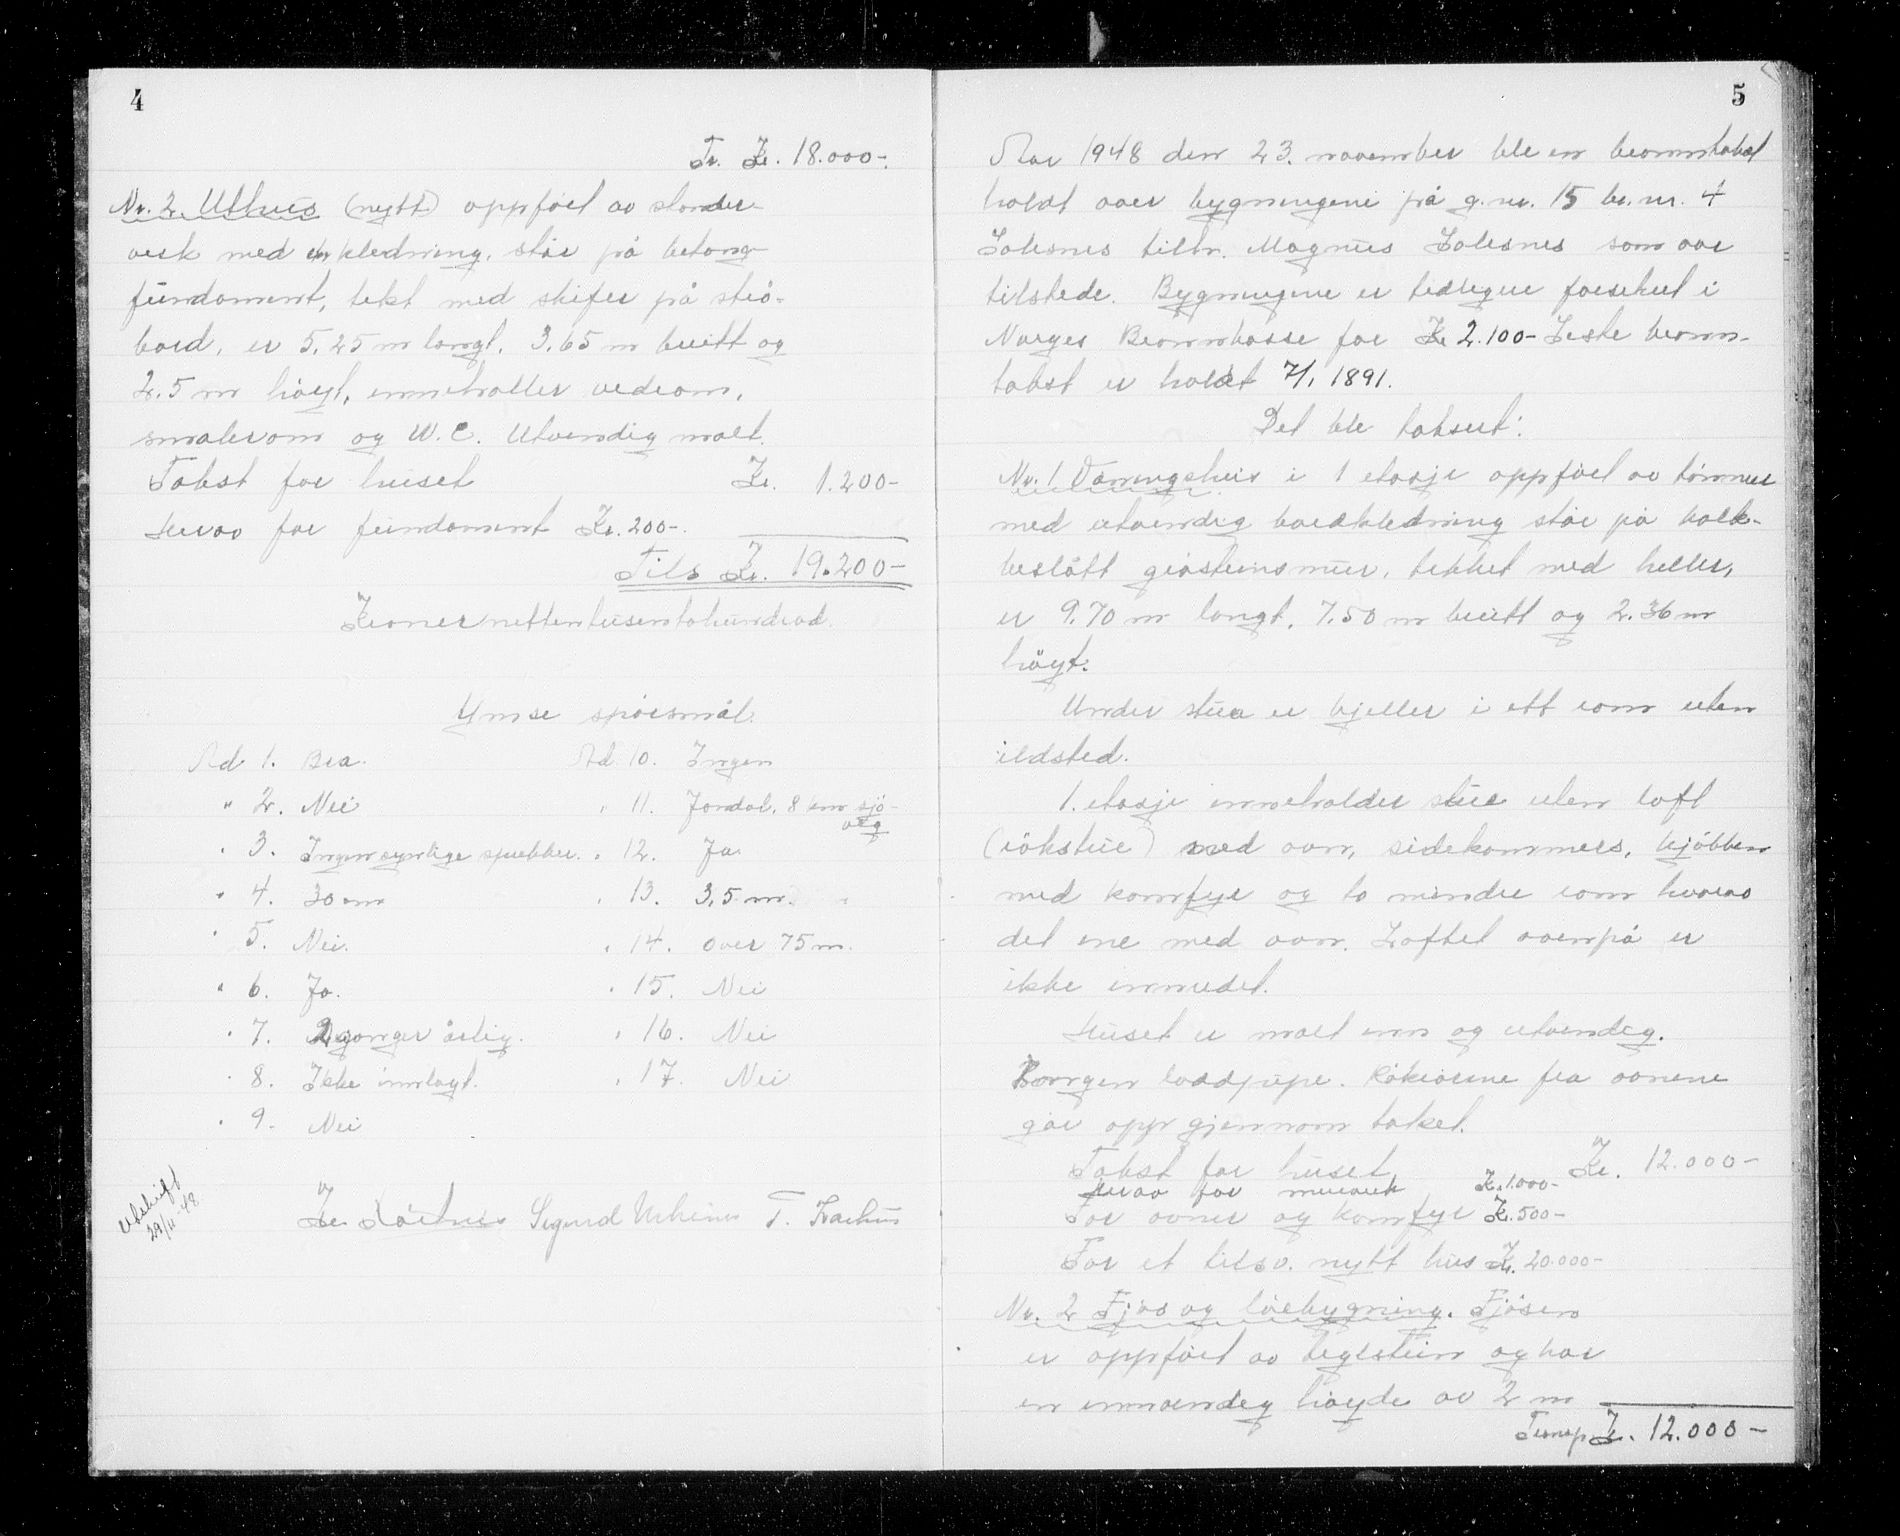 4
Fr. Kr. 18.000-
Nr. 2 Uthus (nytt) oppført av stender-
verk med kledning, står på betong-
fundament, tekt med skifer på stró-
bord, er 5,25 m langt, 3,65 m breitt og
2,5 m høgt, inneholder vedrom,
smalerom og W.C. Utvendig malt.
Takst for huset Kr. 1.200-
Herav for fundament Kr. 200-
Tils Kr. 19.200-
Kroner nittentusentohundrad.
Ymse spørsmål.
Ad 1. Bra.
" 2. Nei
" 3. Ingen synlige sprekker.
" 4. 30 cm
" 5. Nei.
" 6. Ja.
" 7. 2 gonger årlig.
" 8. Ikke innlagt.
" 9. Nei
Ad 10. Ingen
" 11. Jondal, 8 km sjø-
veg
" 12. Ja
" 13. 3,5 m.
" 14. over 75 m.
" 15. Nei
" 16. Nei
" 17. Nei
Utskrift
29/11-48
Sigurd T.
5
Aar 1948 den 23. november ble en branntakst
holdt over bygningene på g.nr. 15 br.nr. 4
Solesnes tilh. Magnus Solesnes som var
tilstede. Bygningene er tidligere forsikret i
Norges Brannkasse for Kr 2.100- Siste brann-
takst er holdt 7/1 1891.
Det ble taksert:
Nr. 1 Våningshus i 1 etasje oppført av tømmer
med utvendig bordkledning står på kalk-
beslått gråsteinsmur, tekket med heller,
er 9,70 m langt, 7,50 m breitt og 2,36 m
høgt.
Under stua er kjeller i ett rom uten
ildsted.
1. etasje inneholder stue uten loft
(røkstue) med ovn, sidekammers, kjøkken
med komfyr og to mindre rom hvorav
det ene med ovn. Loftet ovenpå er
ikke innredet.
Huset er malt inn og utvendig.
Ingen loddpipe. Røkrørene fra ovnene
går opp gjennom taket.
Takst for huset Kr. 12.000-
Herav for murverk Kr. 1.000-
For ovner og komfyr Kr. 500-
For et tilsv. nytt hus Kr. 20.000-
Nr. 2 Fjøs og løebygning. Fjøsen
er oppført av teglstein og har
en innvendig høyde av 2 m
Transp. Kr. 12.000-